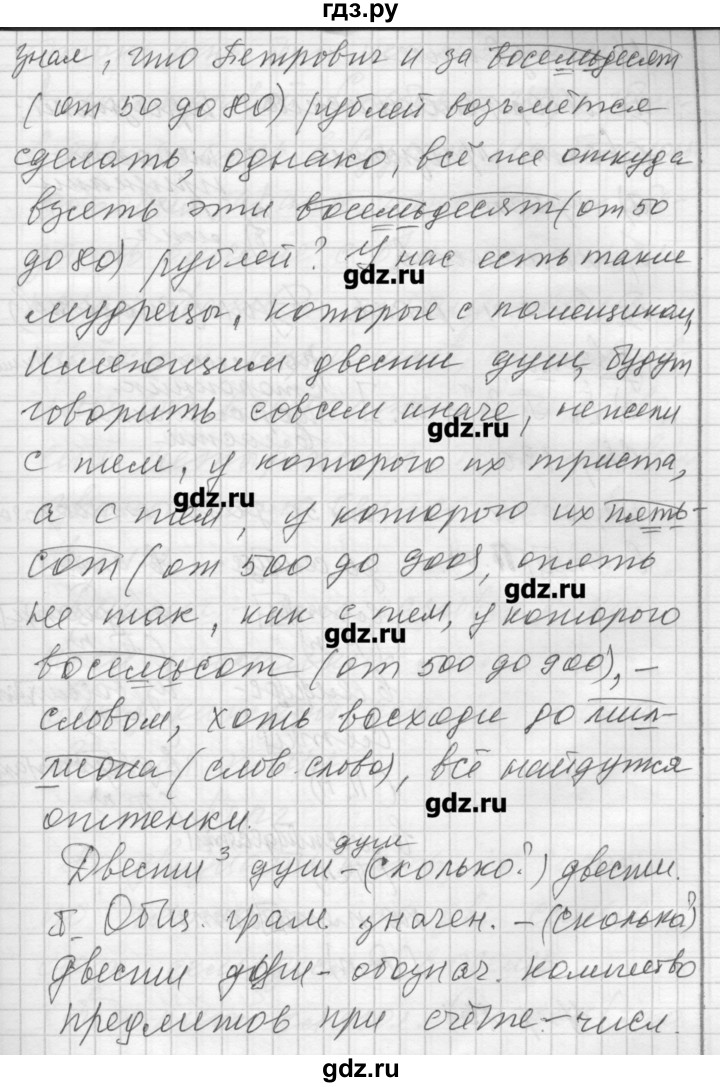 гдз.ру
знал, что Петрович и за восемьдесят
(от 50 до 80) рублей возьмётся
сделать, однако, всё же откуда
взять эти восемьдесят (от 50
до 80) рублей? У нас есть такие
gdz.ru
мудрецы, которые с помещиком,
имеющим двести душ, будут
говорить совсем иначе, нежели
gdz.ru
с тем, у которого их триста,
gdz.ru
а с тем, у которого их пять-
сот (от 500 до 900), опять
gdz.ru
не так, как с тем, у которого
gdz.ru
восемьсот (от 500 до 900), –
словом, хоть восходи до мил-
лиона (слов. слово), всё найдутся
gdz.ru
оттенки.
душ
Двести 3 душ – (сколько?) двести.
б. Общ. грам. значен. – (сколька?)
двести душ – обознач. количество
предметов при счёте – числ.
gdz.ru